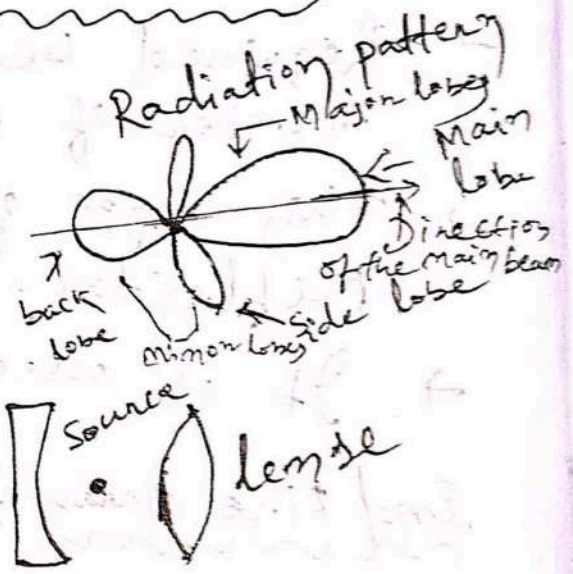 Radiation pattern
Major lobes
Main
lobe
Direction
of the main beam
back
lobe
side lobe
minor lobes
source
lense